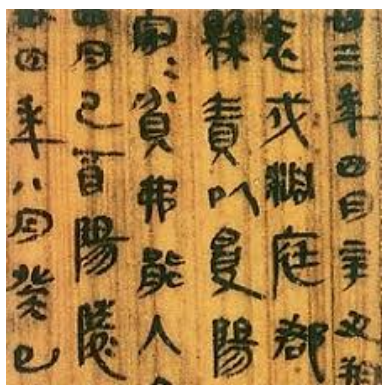 卅三年四月辛丑朔
戍洞庭郡
縣責以受陽
家=貧弗能入
四月己酉陽陵
卅四年八月癸巳